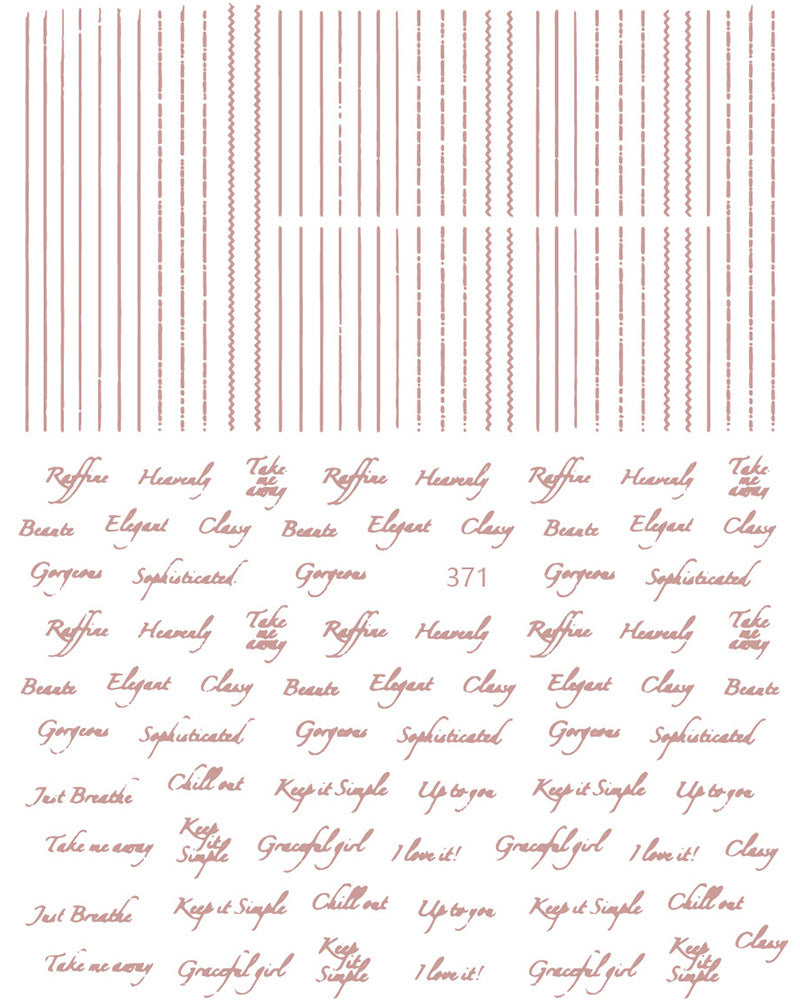 Raffine Heavenly Take me away Raffine Heavenly Raffine Heavenly Take me away
Beaute Elegant Classy Beaute Elegant Classy Beaute Elegant Classy
Gorgeous Sophisticated. Gorgeous 371 Gorgeous Sophisticated
Raffine Heavenly Take me away Raffine Heavenly Raffine Heavenly Take me away
Beaute Elegant Classy Beaute Elegant Classy Elegant Classy Beaute
Gorgeous Sophisticated Gorgeous Sophisticated Gorgeous Sophisticated
Just Breathe Chill out Keep it Simple Up to you Keep it Simple Up to you
Take me away Keep it Simple Graceful girl I love it! Graceful girl I love it! Classy
Just Breathe Keep it Simple Chill out Up to you Keep it Simple Chill out
Take me away Graceful girl Keep it Simple I love it! Graceful girl Keep it Simple Classy